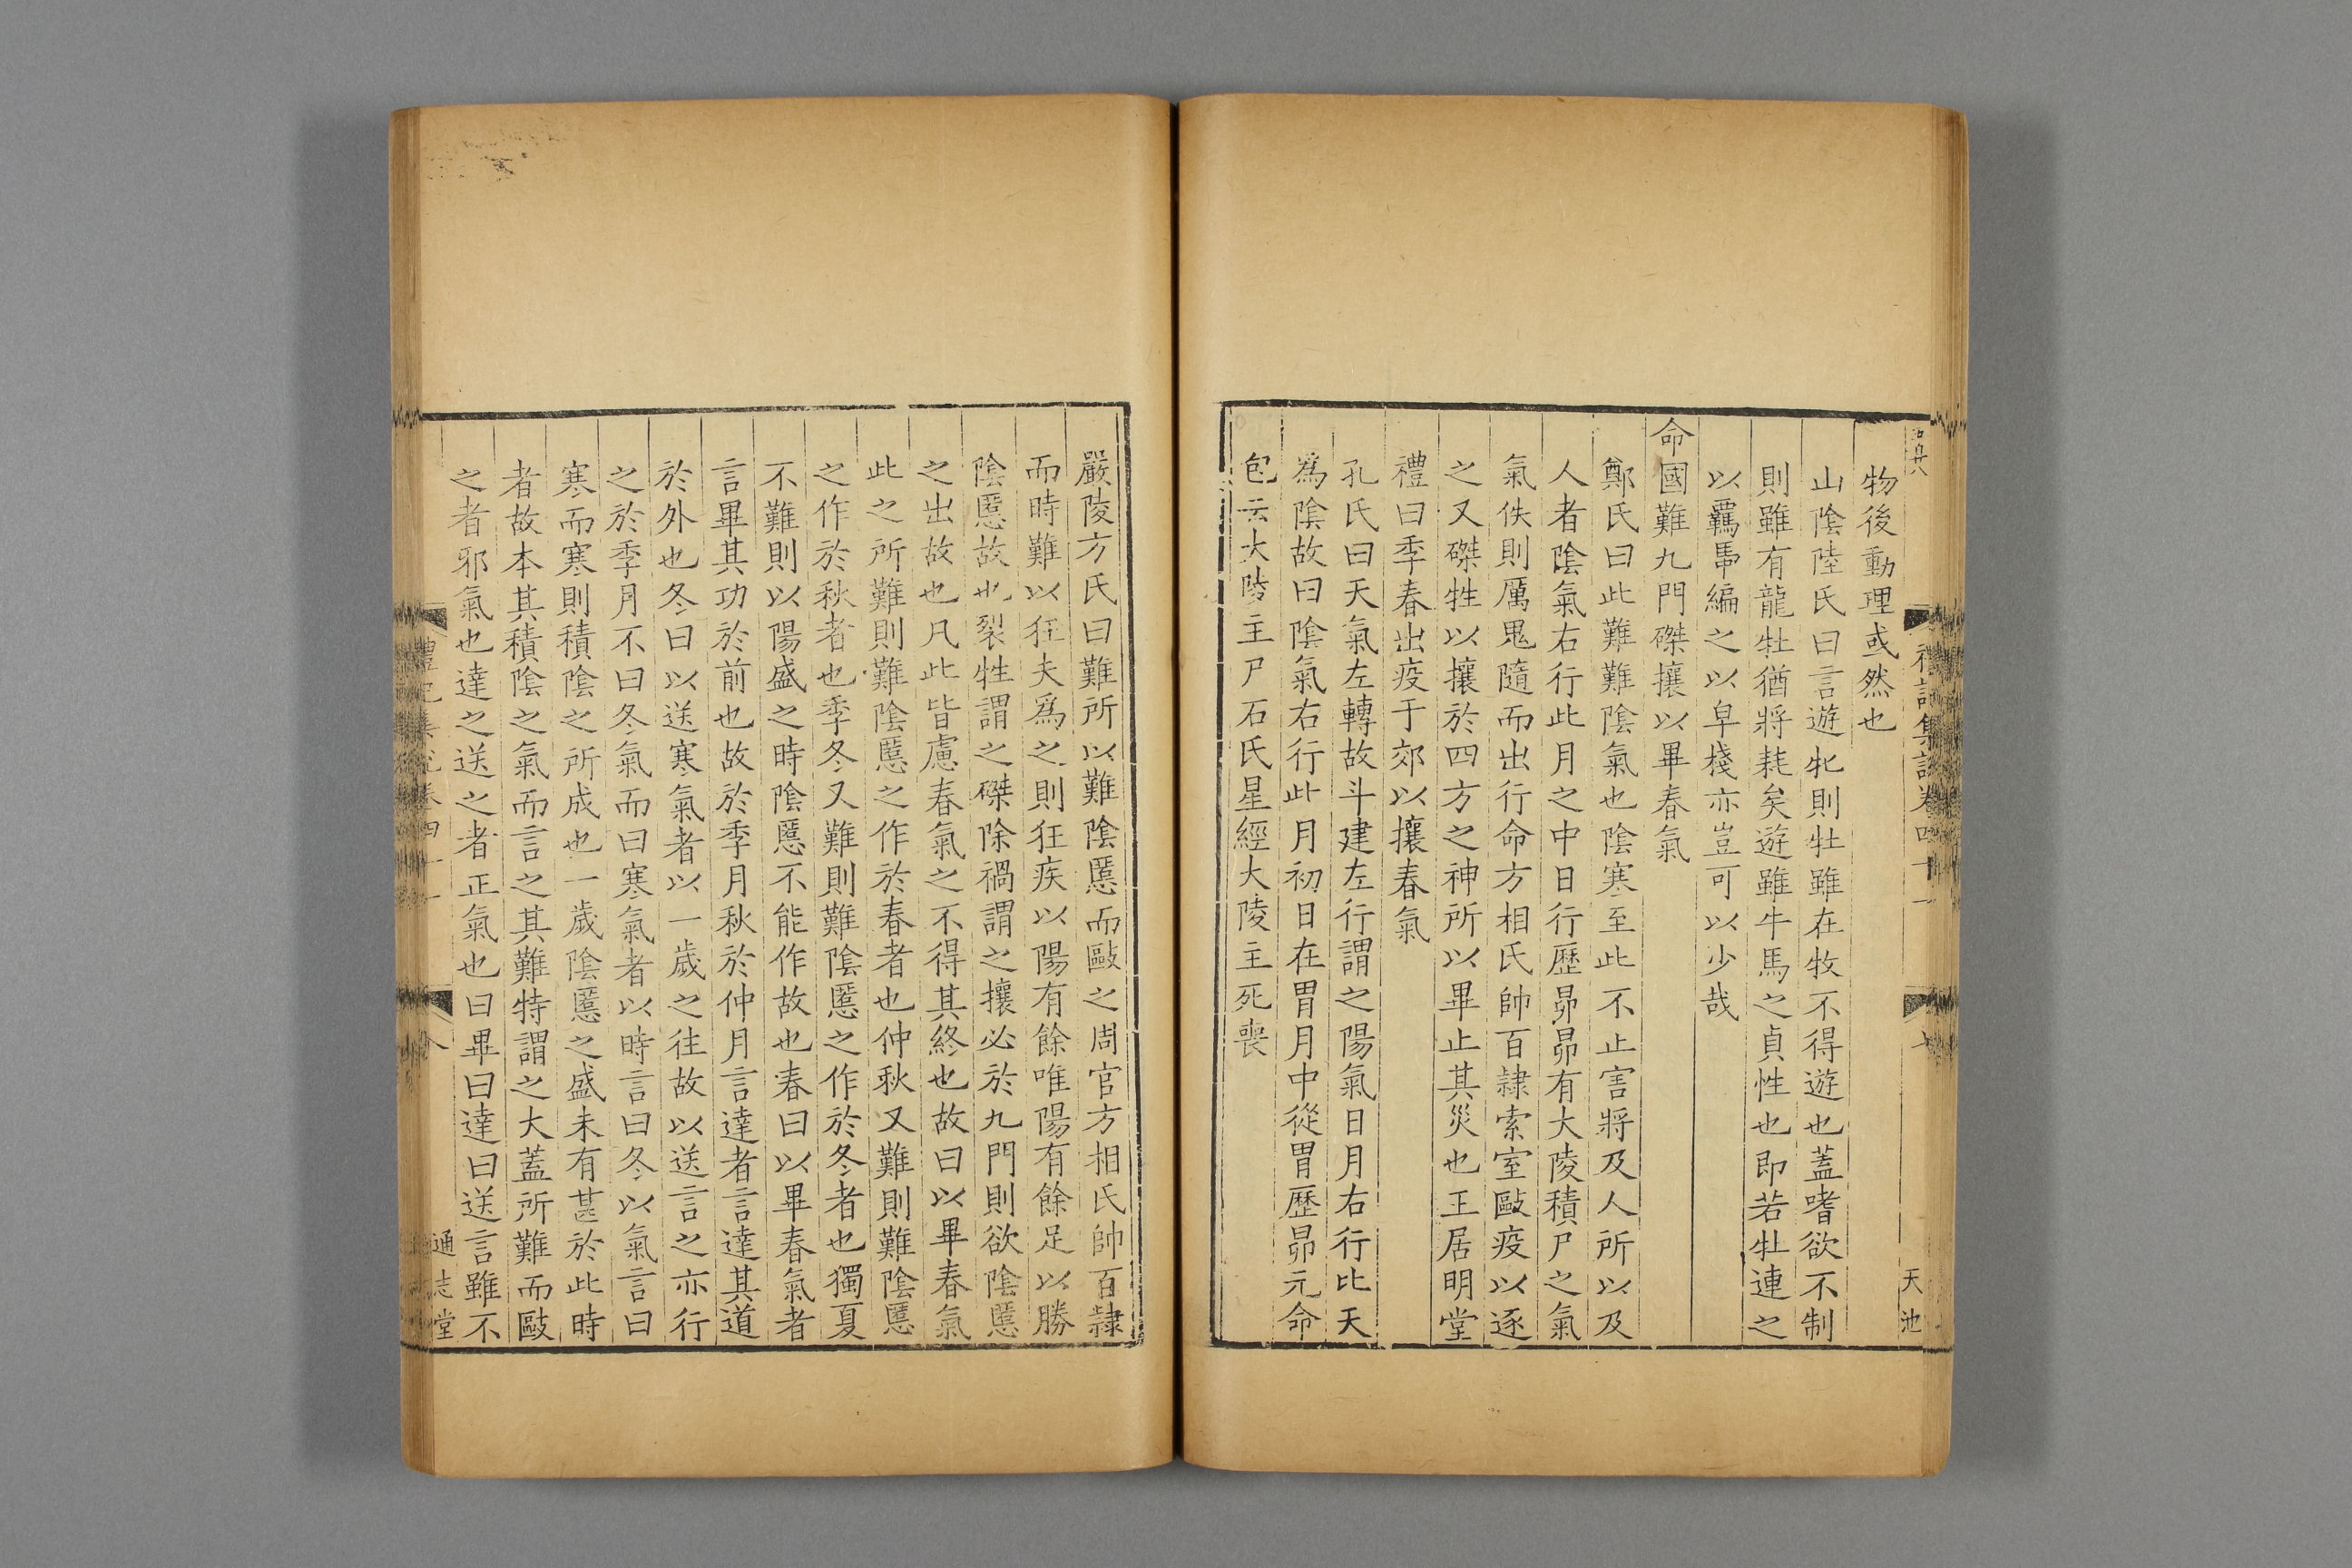 物後動理或然也
山陰陸氏曰言遊牝則牡雖在牧不得遊也蓋嗜欲不制
則雖有龍牡猶將耗矣遊雖牛馬之貞性也即若牡連之
以羈馽編之以皁棧亦豈可以少哉
命國難九門磔攘以畢春氣
鄭氏曰此難難陰氣也陰寒至此不止害將及人所以及
人者陰氣右行此月之中日行歷昴昴有大陵積尸之氣
氣佚則厲鬼隨而出行命方相氏帥百隷索室毆疫以逐
之又磔牲以攘於四方之神所以畢止其災也王居明堂
禮曰季春出疫于郊以攘春氣
孔氏曰天氣左轉故斗建左行謂之陽氣日月右行比天
爲陰故曰陰氣右行此月初日在胃月中從胃歷昴元命
包云大陵主尸石氏星經大陵主死喪
禮記集說卷四十一
七
天池
嚴陵方氏曰難所以難陰慝而毆之周官方相氏帥百隷
而時難以狂夫爲之則狂疾以陽有餘唯陽有餘足以勝
陰慝故也裂牲謂之磔除禍謂之攘必於九門則欲陰慝
之出故也凡此皆慮春氣之不得其終也故曰以畢春氣
此之所難則難陰慝之作於春者也仲秋又難則難陰慝
之作於秋者也季冬又難則難陰慝之作於冬者也獨夏
不難則以陽盛之時陰慝不能作故也春曰以畢春氣者
言畢其功於前也故於季月秋於仲月言達者言達其道
於外也冬曰以送寒氣者以一歲之往故以送言之亦行
之於季月不曰冬氣而曰寒氣者以時言曰冬以氣言曰
寒而寒則積陰之所成也一歲陰慝之盛未有甚於此時
者故本其積陰之氣而言之其難特謂之大蓋所難而毆
之者邪氣也達之送之者正氣也曰畢曰達曰送言雖不
禮記集說卷四十一
八
通志堂